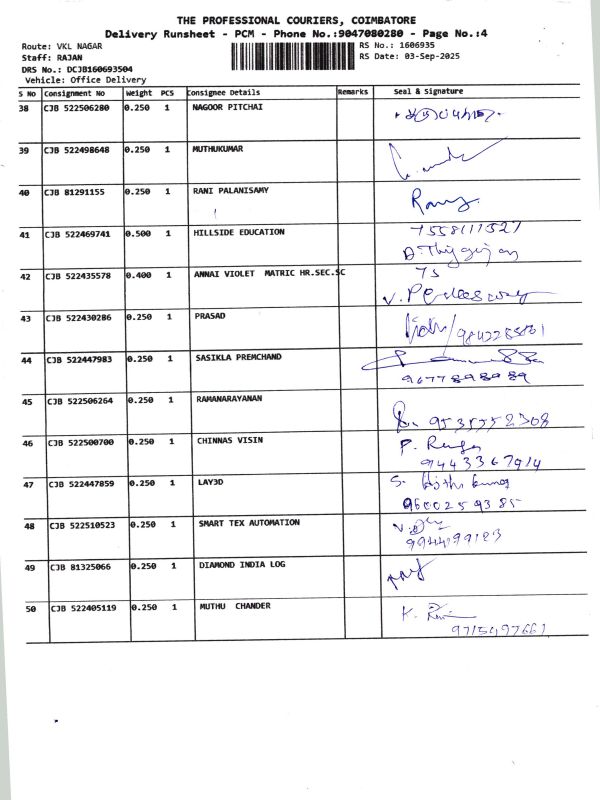 THE PROFESSIONAL COURIERS, COIMBATORE
Delivery Runsheet - PCM - Phone No.:9047080280 - Page No.:4
Route: VKL NAGAR
RS No.: 1606935
Staff: RAJAN
RS Date: 03-Sep-2025
DRS No.: DCJB160693504
Vehicle: Office Delivery
S No Consignment No Weight PCS Consignee Details Remarks Seal & Signature
38 CJB 522506280 0.250 1 NAGOOR PITCHAI
39 CJB 522498648 0.250 1 MUTHUKUMAR
40 CJB 81291155 0.250 1 RANI PALANISAMY
41 CJB 522469741 0.500 1 HILLSIDE EDUCATION 7558111527
42 CJB 522435578 0.400 1 ANNAI VIOLET MATRIC HR.SEC.SC 75
43 CJB 522430286 0.250 1 PRASAD
44 CJB 522447983 0.250 1 SASIKLA PREMCHAND
9677898989
45 CJB 522506264 0.250 1 RAMANARAYANAN
46 CJB 522500700 0.250 1 CHINNAS VISIN P.
9443367914
47 CJB 522447859 0.250 1 LAY3D S.
9600259385
48 CJB 522510523 0.250 1 SMART TEX AUTOMATION
49 CJB 81325066 0.250 1 DIAMOND INDIA LOG
50 CJB 522405119 0.250 1 MUTHU CHANDER K.
9715497661